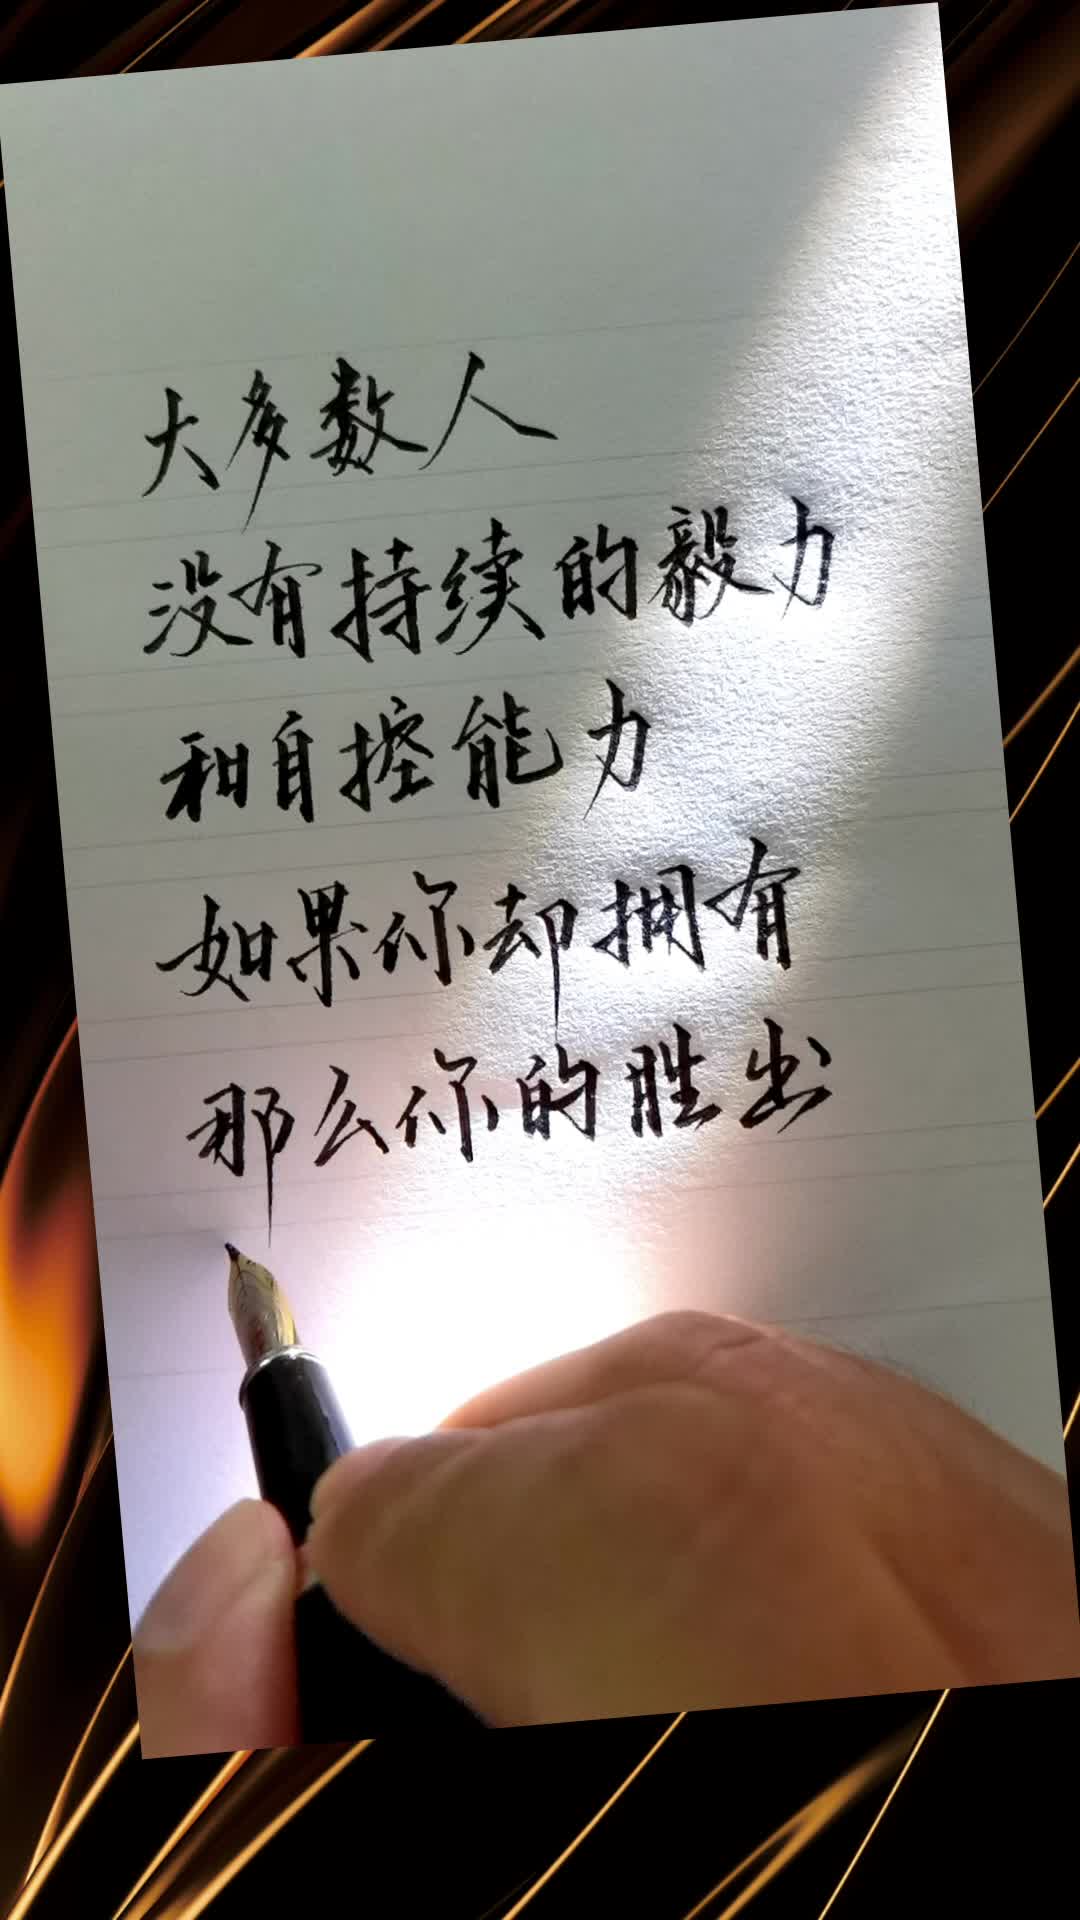 大多数人
没有持续的毅力
和自控能力
如果你却拥有
那么你的胜出